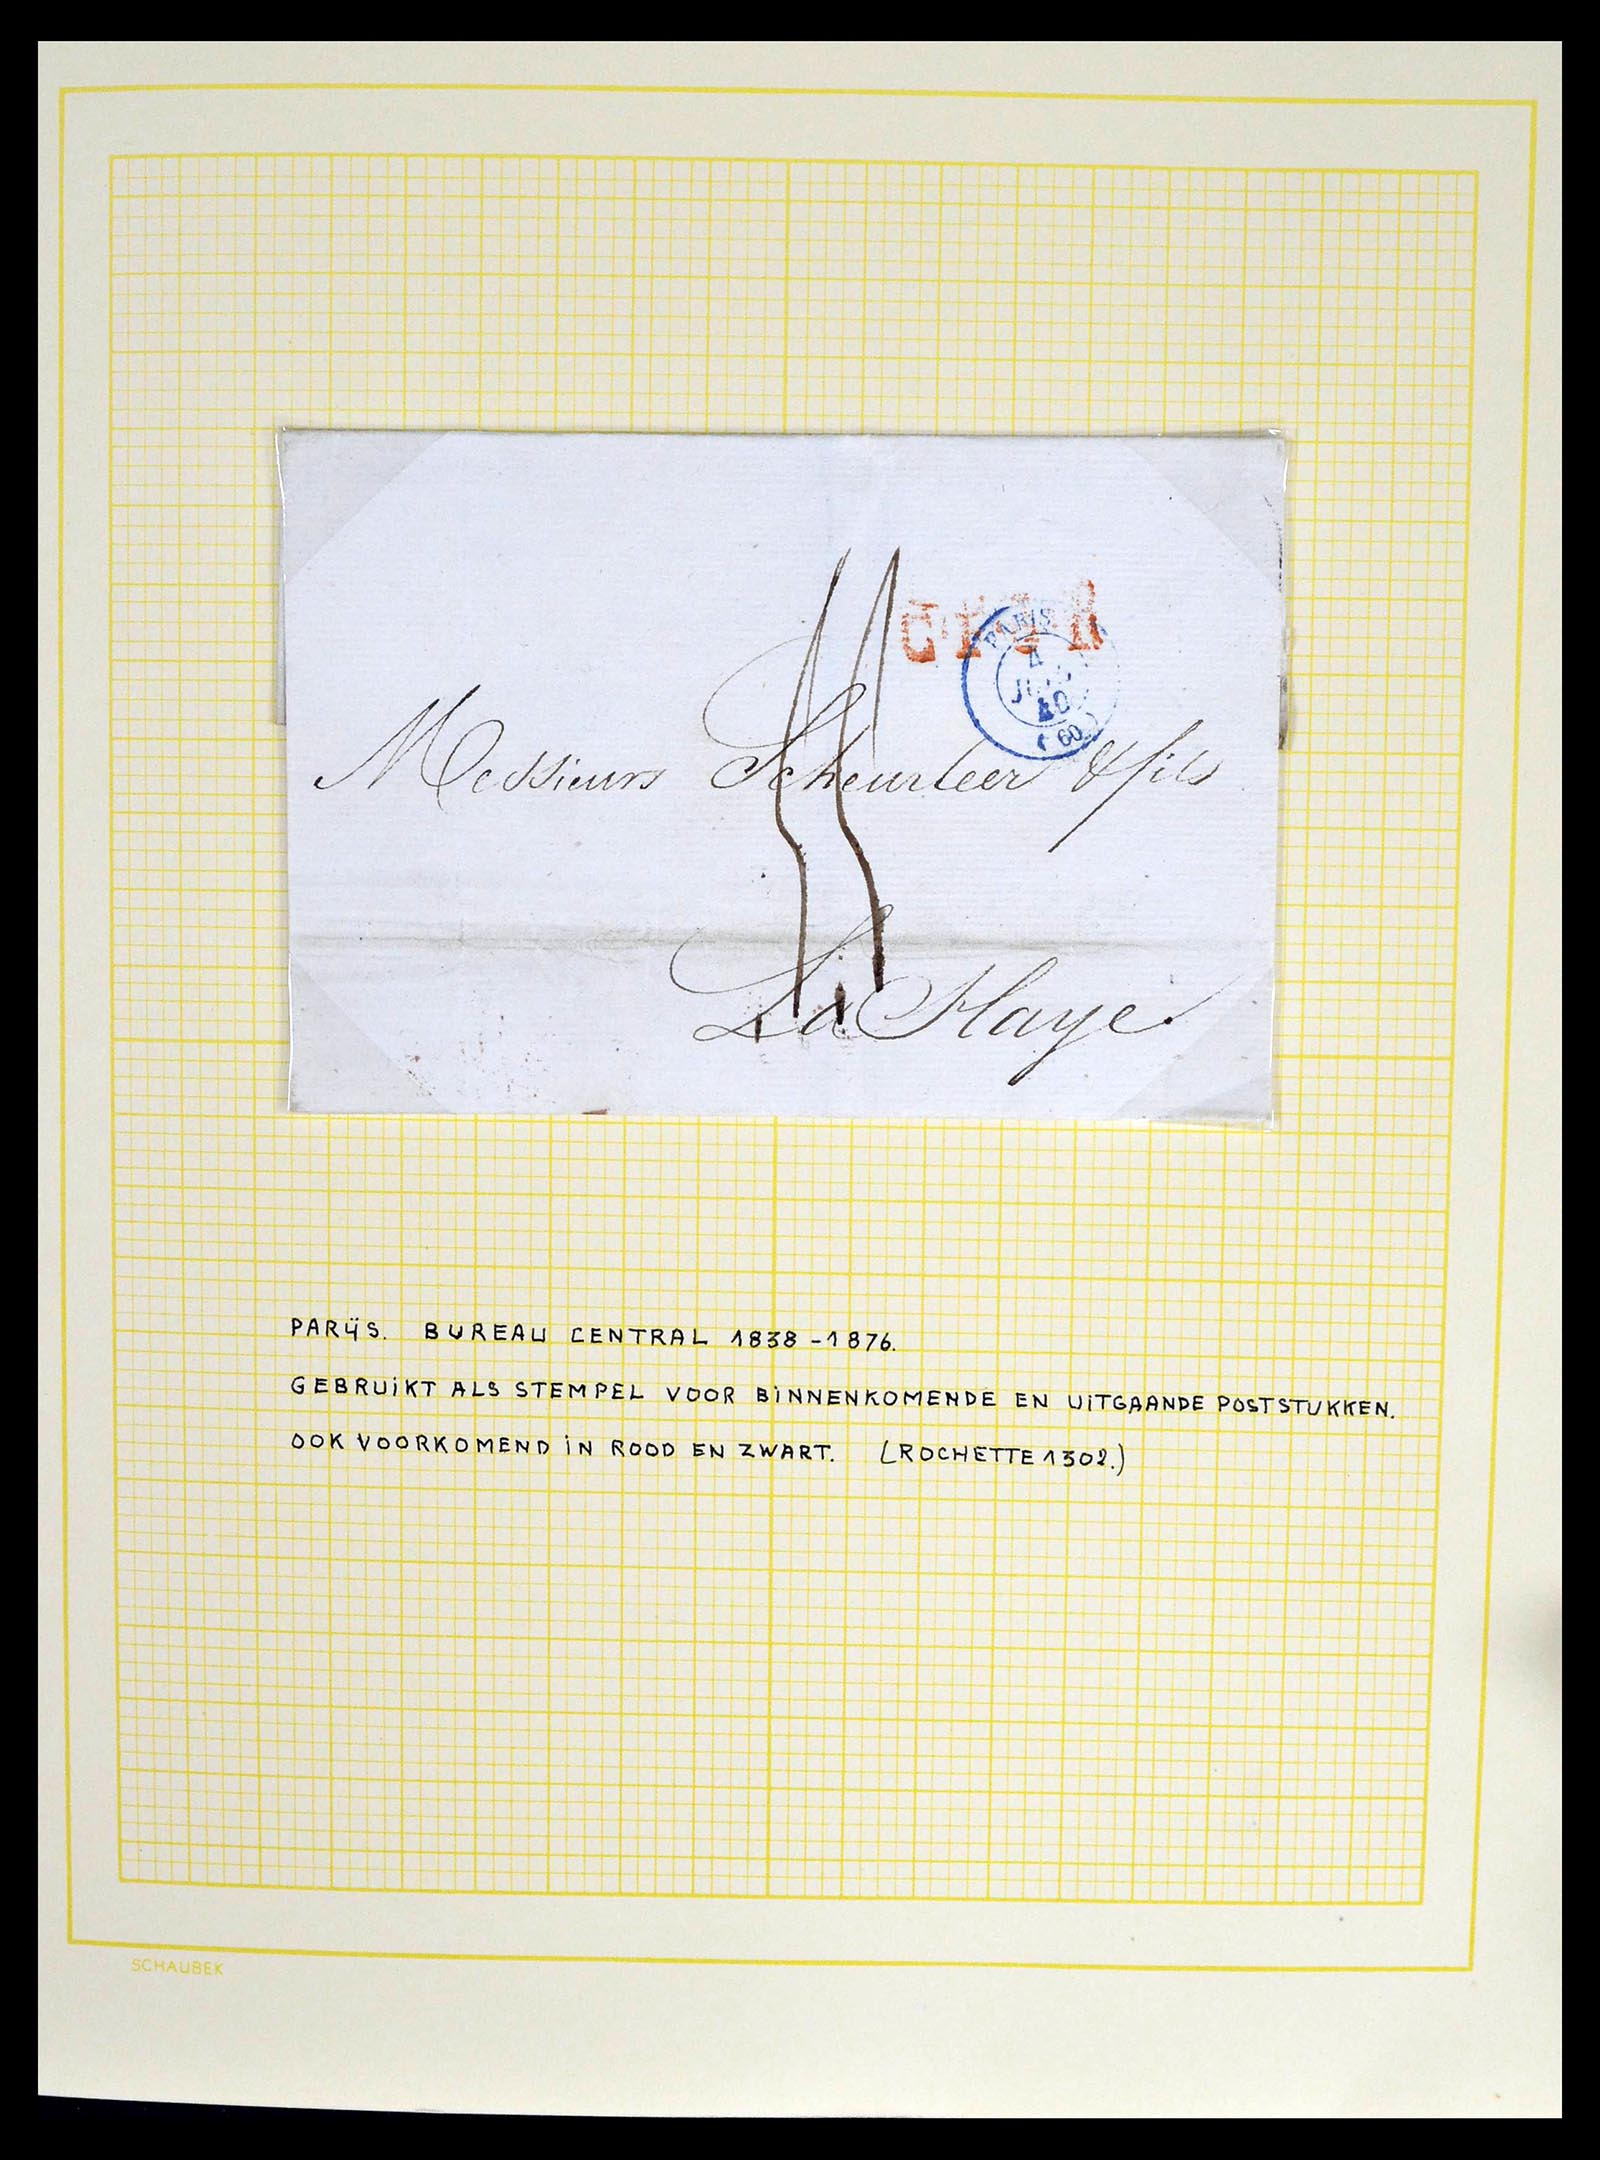 PARIS
4
40
(60)
Messieurs Scheurleer & fils
La Haye.
PARIJS. BUREAU CENTRAL 1838-1876.
GEBRUIKT ALS STEMPEL VOOR BINNENKOMENDE EN UITGAANDE POSTSTUKKEN.
OOK VOORKOMEND IN ROOD EN ZWART. (ROCHETTE 1302.)
SCHAUBEK